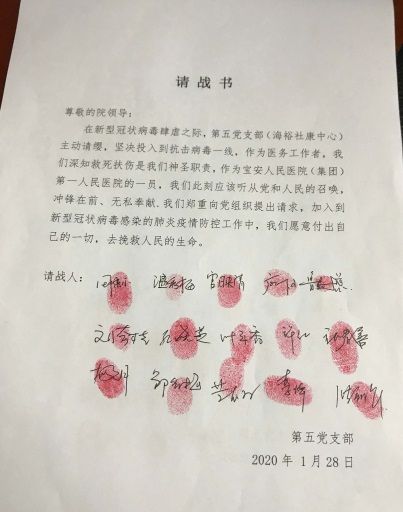 请战书
尊敬的院领导：
在新型冠状病毒肆虐之际，第五党支部（海裕社康中心）
主动请缨，坚决投入到抗击病毒一线，作为医务工作者，我
们深知救死扶伤是我们神圣职责，作为宝安人民医院（集团）
第一人民医院的一员，我们此刻应该听从党和人民的召唤，
冲锋在前、无私奉献.我们郑重向党组织提出请求，加入到
新型冠状病毒感染的肺炎疫情防控工作中，我们愿意付出自
己的一切，去挽救人民的生命。
请战人：
第五党支部
2020 年 1 月 28 日